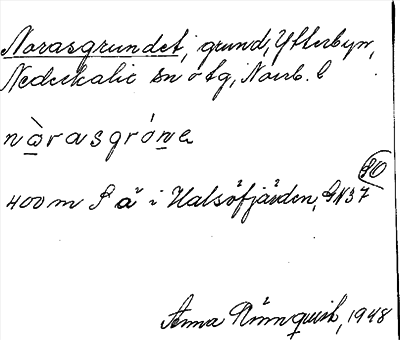 Norasgrundet, grund, Ytterbyn,
Nederkalix sn o tg, Norrb. l
nòrasgróne
80
400 m S a² i Halsöfjärden, GN37
Anna Rönnqvist, 1948